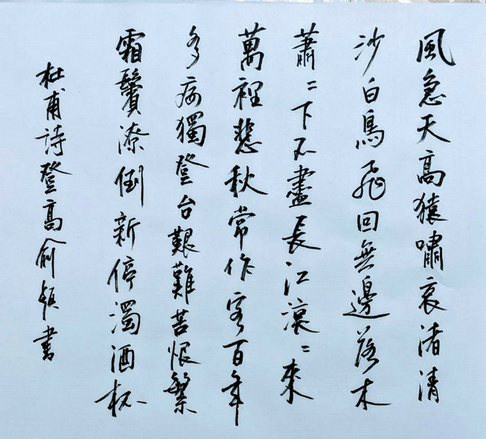 風急天高猿嘯哀渚清
沙白鳥飛回無邊落木
蕭〻下不盡長江滾〻來
萬裡悲秋常作客百年
多病獨登台艱難苦恨繁
霜鬢潦倒新停濁酒杯
杜甫詩登高俞頌書